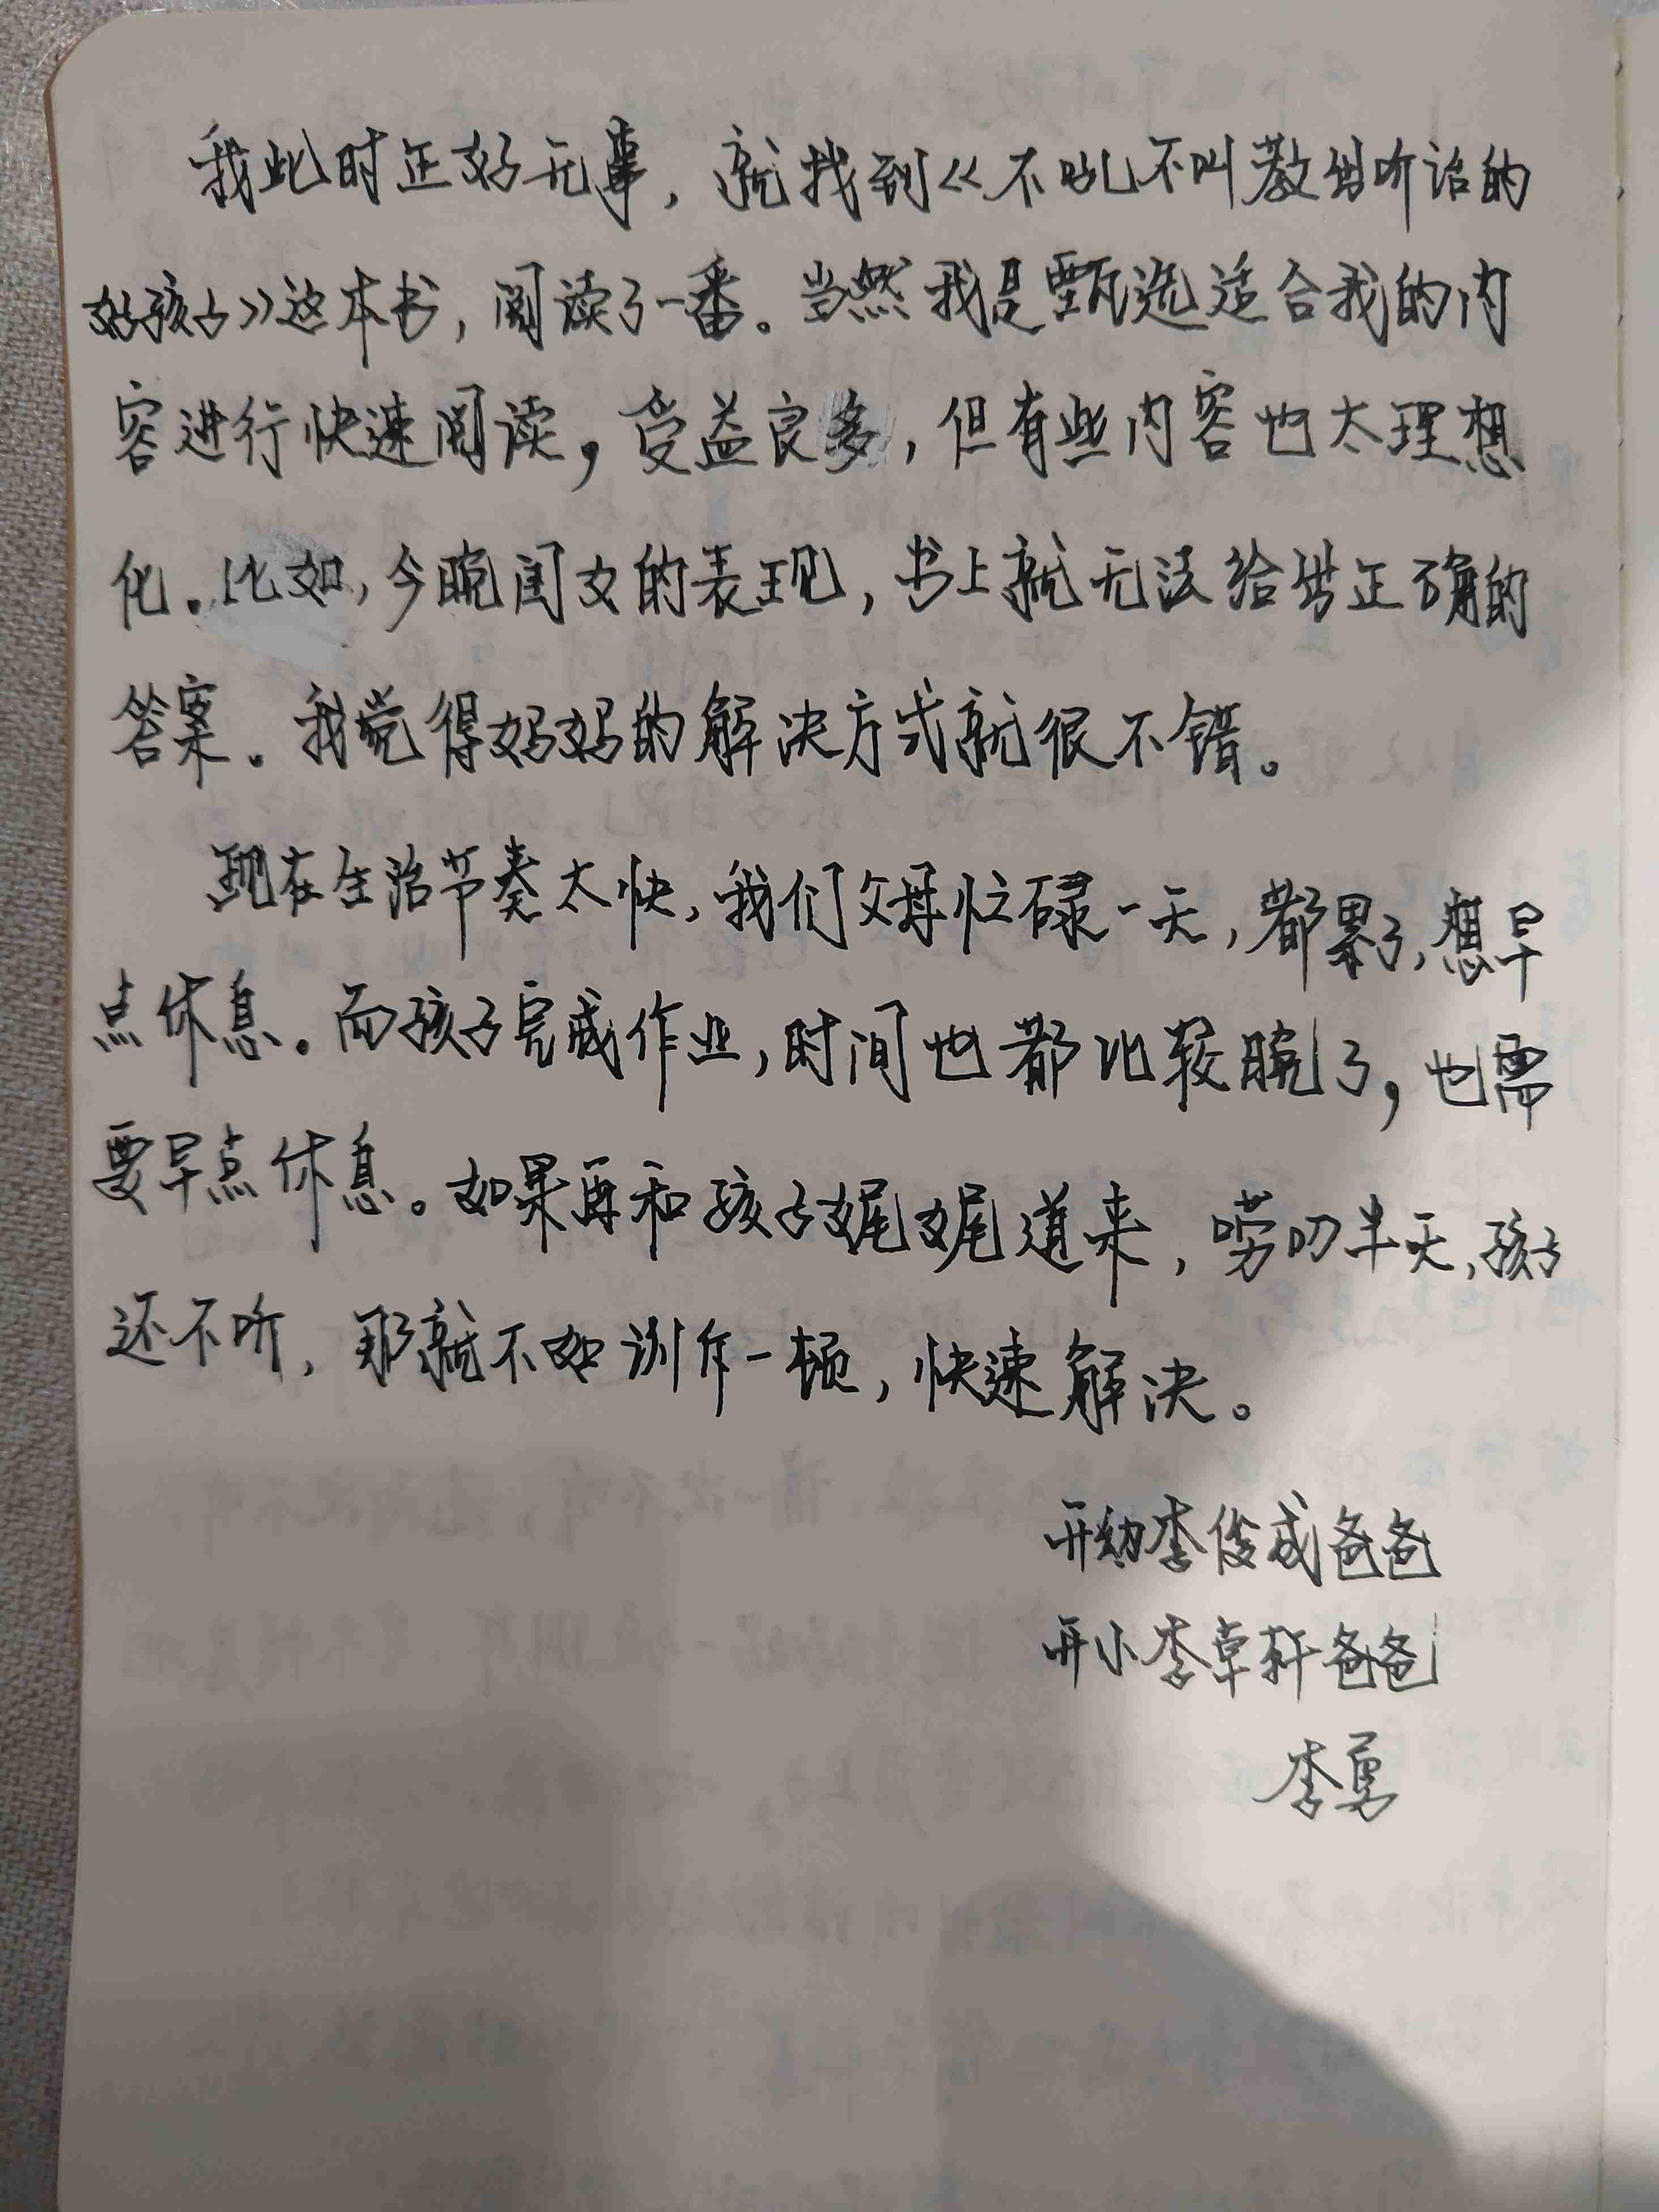 我此时正好无事，就找到《不吼不叫教出听话的
好孩子》这本书，阅读了一番。当然我是甄选适合我的内
容进行快速阅读，受益良多，但有些内容也太理想
化。比如，今晚闺女的表现，书上就无法给出正确的
答案。我觉得妈妈的解决方式就很不错。
现在生活节奏太快，我们父母忙碌一天，都累了，想早
点休息。而孩子完成作业，时间也都比较晚了，也需
要早点休息。如果再和孩子娓娓道来，唠叨半天，孩子
还不听，那就不如训斥一顿，快速解决。
开幼李俊成爸爸
开小李卓轩爸爸
李勇